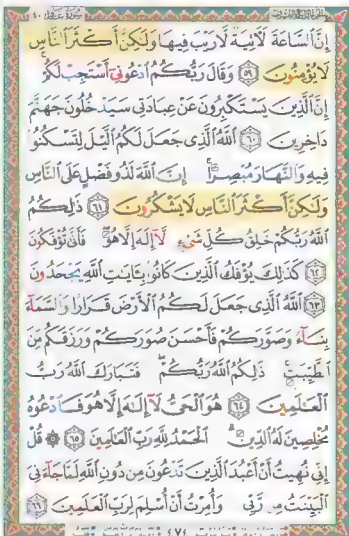 إِنَّ ٱلسَّاعَةَ لَأٓتِيَةٌ لَّا رَيْبَ فِيهَا وَلَٰكِنَّ أَكْثَرَ ٱلنَّاسِ
لَا يُؤْمِنُونَ ٥٩ وَقَالَ رَبُّكُمُ ٱدْعُونِىٓ أَسْتَجِبْ لَكُمْ
إِنَّ ٱلَّذِينَ يَسْتَكْبِرُونَ عَنْ عِبَادَتِى سَيَدْخُلُونَ جَهَنَّمَ
دَاخِرِينَ ٦٠ ٱللَّهُ ٱلَّذِى جَعَلَ لَكُمُ ٱلَّيْلَ لِتَسْكُنُوا۟
فِيهِ وَٱلنَّهَارَ مُبْصِرًا إِنَّ ٱللَّهَ لَذُو فَضْلٍ عَلَى ٱلنَّاسِ
وَلَٰكِنَّ أَكْثَرَ ٱلنَّاسِ لَا يَشْكُرُونَ ٦١ ذَٰلِكُمُ
ٱللَّهُ رَبُّكُمْ خَٰلِقُ كُلِّ شَىْءٍ لَّآ إِلَٰهَ إِلَّا هُوَ فَأَنَّىٰ تُؤْفَكُونَ
٦٢ كَذَٰلِكَ يُؤْفَكُ ٱلَّذِينَ كَانُوا۟ بِـَٔايَٰتِ ٱللَّهِ يَجْحَدُونَ
٦٣ ٱللَّهُ ٱلَّذِى جَعَلَ لَكُمُ ٱلْأَرْضَ قَرَارًا وَٱلسَّمَآءَ
بِنَآءً وَصَوَّرَكُمْ فَأَحْسَنَ صُوَرَكُمْ وَرَزَقَكُم مِّنَ
ٱلطَّيِّبَٰتِ ذَٰلِكُمُ ٱللَّهُ رَبُّكُمْ فَتَبَارَكَ ٱللَّهُ رَبُّ
ٱلْعَٰلَمِينَ ٦٤ هُوَ ٱلْحَىُّ لَآ إِلَٰهَ إِلَّا هُوَ فَٱدْعُوهُ
مُخْلِصِينَ لَهُ ٱلدِّينَ ٱلْحَمْدُ لِلَّهِ رَبِّ ٱلْعَٰلَمِينَ ٦٥ ۞ قُلْ
إِنِّى نُهِيتُ أَنْ أَعْبُدَ ٱلَّذِينَ تَدْعُونَ مِن دُونِ ٱللَّهِ لَمَّا جَآءَنِىَ
ٱلْبَيِّنَٰتُ مِن رَّبِّى وَأُمِرْتُ أَنْ أُسْلِمَ لِرَبِّ ٱلْعَٰلَمِينَ ٦٦
٤٧٤